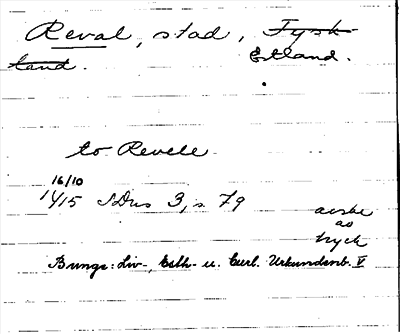 Reval, stad, Tysk-
land. Estland.
to Revele
16/10
1415 SDns 3, s. 79
avskr
as
tryck
Bunge: Liv-, Esth- u. Curl. Urkundenb. V